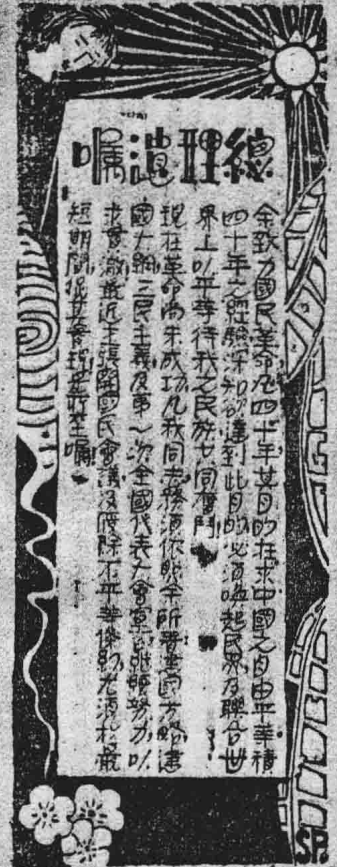 總理遺囑
余致力國民革命凡四十年其目的在求中國之自由平等積
四十年之經驗深知欲達到此目的必須喚起民衆及聯合世
界上以平等待我之民族共同奮鬥
現在革命尚未成功凡我同志務須依照余所著建國方略建
國大綱三民主義及第一次全國代表大會宣言繼續努力以
求貫澈最近主張開國民會議及廢除不平等條約尤須於最
短期間促其實現是所至囑
SP.